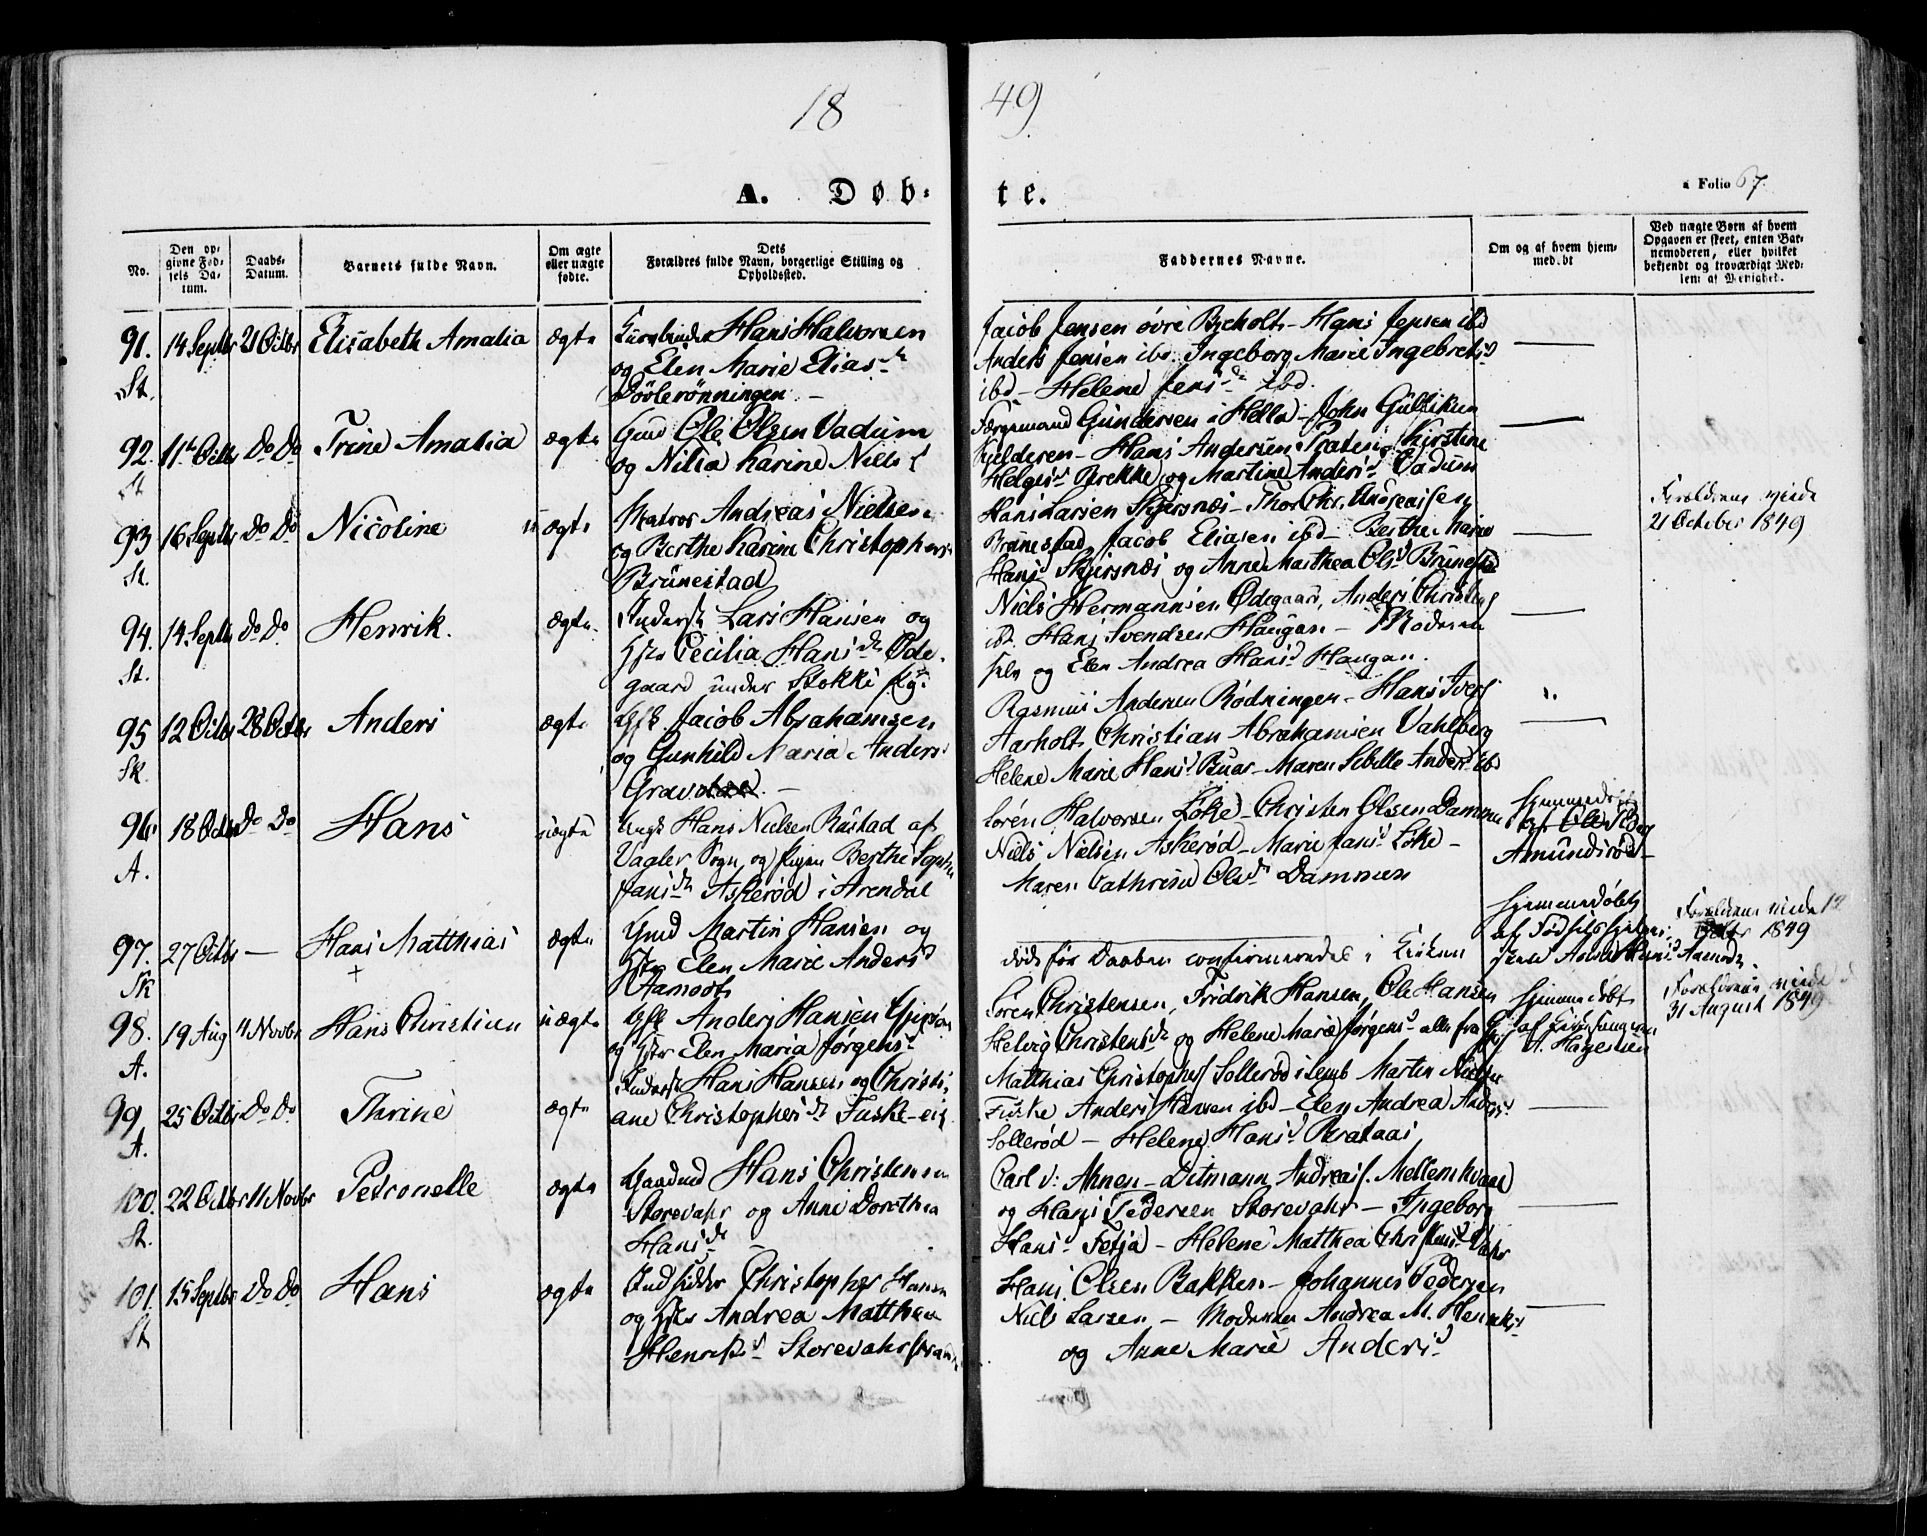 18 49
A. Døb- te.
Folio 67.
No.
Den opgivne Fødsels Datum.
Daabs-Datum.
Barnets fulde Navn.
Om ægte eller uægte fødte.
Dets Forældres fulde Navn, borgerlige Stilling og Opholdssted.
Faddernes Navne.
Om og af hvem hjemmedøbt
Ved uægte Børn af hvem Opgaven er skeet, enten Barnemoderen, eller hvilket bekjendt og troværdigt Medlem af Menighet.
91. St. 14 Septbr 21 Octbr Elisabeth Amalia ægte
Hans Halvorsen
og Elen Marie Elias
Døvlerønningen
Jacob Jensen øvre Bjerholt - Hans Jepsen ibd
Anders Jensen ibd. Ingeborg Marie Ingebrets
ibd - Helene Jensd ibd.
92. St 11 Octbr Do Do Trine Amalia ægte
Gmd Ole Olsen Vadum
og Nilia Karine Niels
Færgemand Gundersen i Hella - John Gulliksen
Kjelderen - Hans Andersen Kirstine
Helges Brekke og Martine Anders Vadum
93 St. 16 Septbr Do Do Nicoline ægte
Matros Andreas Nielsen
og Berthe Karine Christophers
Brunestad
Hans Larsen Skjersnæs - Thor Chr. Andreassen
Brunestad Jacob Eliasen ibd - Berthe Marie
Hans Skjersnæs og Anne Marthea Ols Brunestad
Forældrene viede
21 October 1849
94. St. 14 Septbr Do Do Henrik. ægte
Inderst Lars Hansen og
Hstr Cecilia Hansd Øde-
gaard under Stokke
Niels Hermannsen Ødegaard, Anders Christens
ibd. Hans Svendsen Haugan - Moderen
selv og Elen Andrea Hans Haugan.
95 Sk. 12 Octbr 28 Octbr Anders ægte
Jacob Abrahamsen
og Gunhild Maria Anders
Rasmus Andersen Rødningen - Hans Ivers
Aarholt Christian Abrahamsen Vahlberg
Helene Marie Hans Buar - Maren Sibille Anders ibd
96 A. 18 Octbr Do Do Hans uægte
Ungk Hans Nielsen Rustad af
Vagler Sogn og Pigen Berthe Sophie
Jansd Askerød i Arendal
Søren Halvorsen Løke - Christen Olsen Dammen
Niels Nielsen Askerød - Marie Jans Løke -
Maren Cathrine Olsd Dammen
Hjemmedøbt
af Ole
Amundsrød
97. Sk 27 Octbr — Hans Matthias + ægte
Gmd Martin Hansen og
Hstr Elen Marie Anders
Aamodt
døde før Daaben confirmeredes i Kirken
Hjemmedøbt
af Fødselshjelper-
Aamodt.
Forældrene viede 12
1849
98. A. 19 Aug 4 Novbr Hans Christian uægte
Anders Hansen Gjipøen
og Elen Maria Jørgens
Søren Christensen, Fridrik Hansen, Ole Hansen
Helvig Christensd og Helene Marie Jørgens alle fra
Hjemmedøbt
af
A. Hagensen
Forældrene viede
31 August 1849
99 A. 25 Octbr Do Do Thrine ægte
Inderst Hans Hansen og Christi-
ane Christophersd Fuske-eie
Matthias Christophers Sollerød i Lemb Martin Nielsen
Fuske Anders Hansen ibd - Elen Andrea Anders
Sollerød - Helene Hans Brataas
100. St. 22 Octbr 11 Novbr Petronelle ægte
Gaardmd Hans Christensen
Storevahr og Anne Dorothea
Hansd
Carl v: Ahnen - Ditmann Andreass. Mellemhvaal
og Hans Pedersen Storevahr - Ingeborg
Hans Fetja - Helene Matthea Christens Vahr
101. St 15 Septbr Do Do Hans ægte
Indsidder Christopher Hansen
og Hstr Andrea Matthea
Henriks Storevahr
Hans Olsen Bakken - Johannes Pedersen
Niels Larsen - Moderen Andrea M. Henriks
og Anne Marie Anders